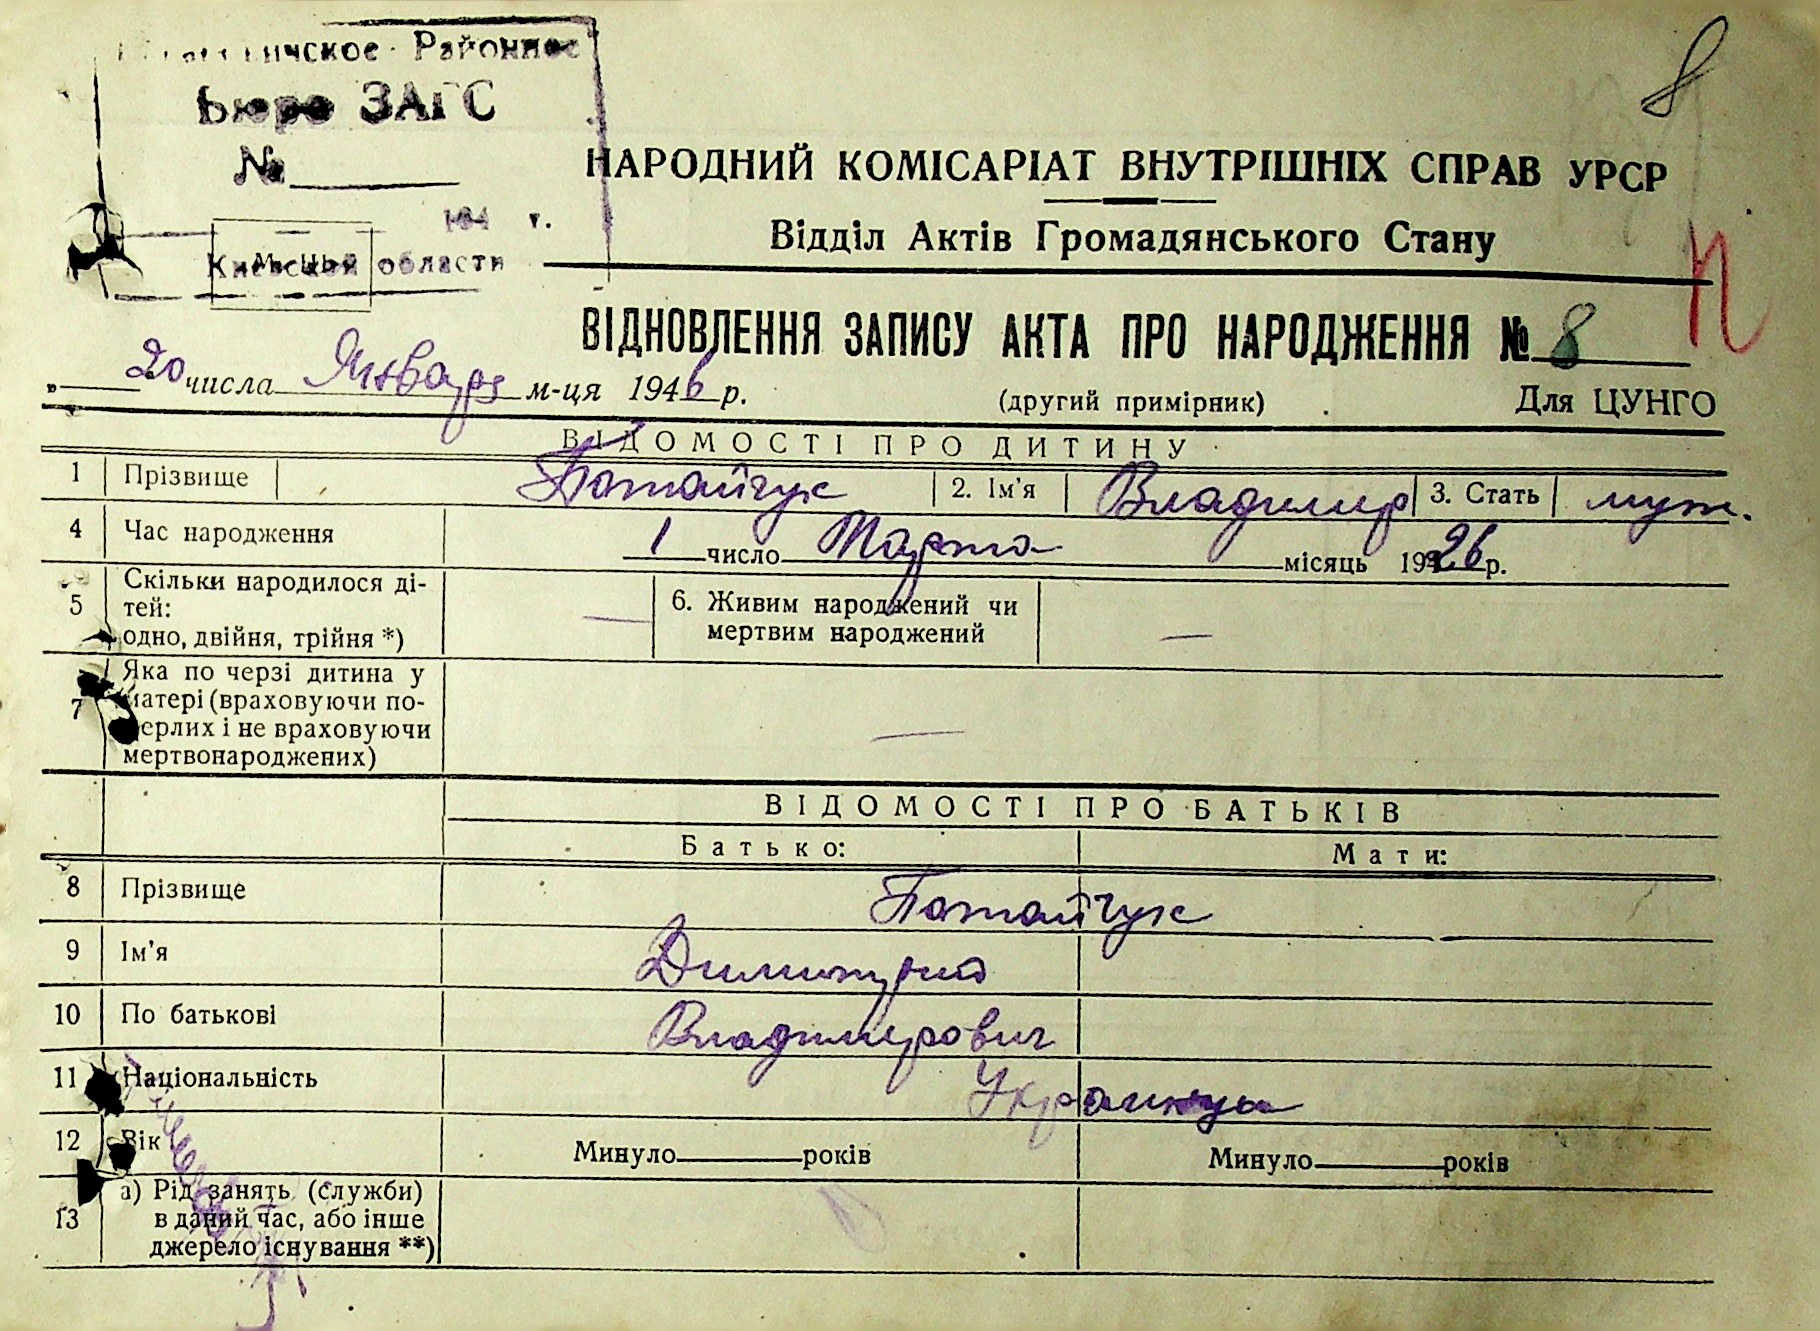 Районное
Бюро ЗАГС
№
194 г.
Киевской области
8
НАРОДНИЙ КОМІСАРІАТ ВНУТРІШНІХ СПРАВ УРСР
Відділ Актів Громадянського Стану
П
ВІДНОВЛЕННЯ ЗАПИСУ АКТА ПРО НАРОДЖЕННЯ № 8
„ 20 числа Января м-ця 1946 р.
(другий примірник) Для ЦУНГО
ВІДОМОСТІ ПРО ДИТИНУ
1 Прізвище Потайчук 2. Ім'я Владимир 3. Стать муж.
4 Час народження 1 число Марта місяць 1926 р.
5 Скільки народилося ді-
тей:
одно, двійня, трійня *)
6. Живим народжений чи
мертвим народжений
7 Яка по черзі дитина у
матері (враховуючи по-
мерлих і не враховуючи
мертвонароджених)
ВІДОМОСТІ ПРО БАТЬКІВ
Батько: Мати:
8 Прізвище Потайчук
9 Ім'я Димитрий
10 По батькові Владимирович
11 Національність Украинцы
12 Вік Минуло років Минуло років
13 а) Рід занять (служби)
в даний час, або інше
джерело існування **)